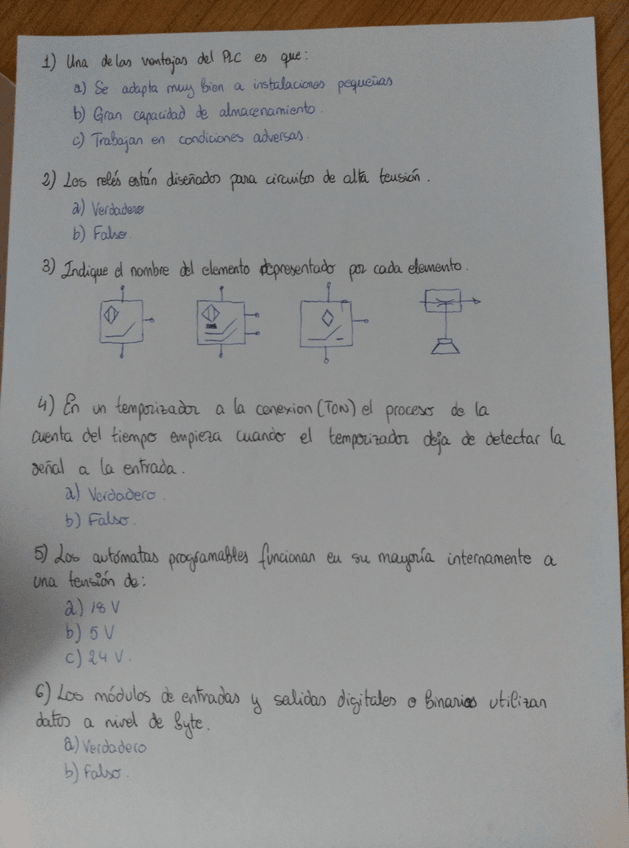 1) Una de las ventajas del PLC es que:
a) Se adapta muy bien a instalaciones pequeñas
b) Gran capacidad de almacenamiento.
c) Trabajan en condiciones adversas.
2) Los relés están diseñados para circuitos de alta tensión.
a) Verdadero
b) Falso.
3) Indique el nombre del elemento representado por cada elemento.
4) En un temporizador a la conexion (TON) el proceso de la
cuenta del tiempo empieza cuando el temporizador deja de detectar la
señal a la entrada.
a) Verdadero.
b) Falso.
5) Los autómatas programables funcionan en su mayoría internamente a
una tensión de:
a) 18 V
b) 5 V
c) 24 V.
6) Los módulos de entradas y salidas digitales o binarios utilizan
datos a nivel de byte.
a) Verdadero
b) Falso.